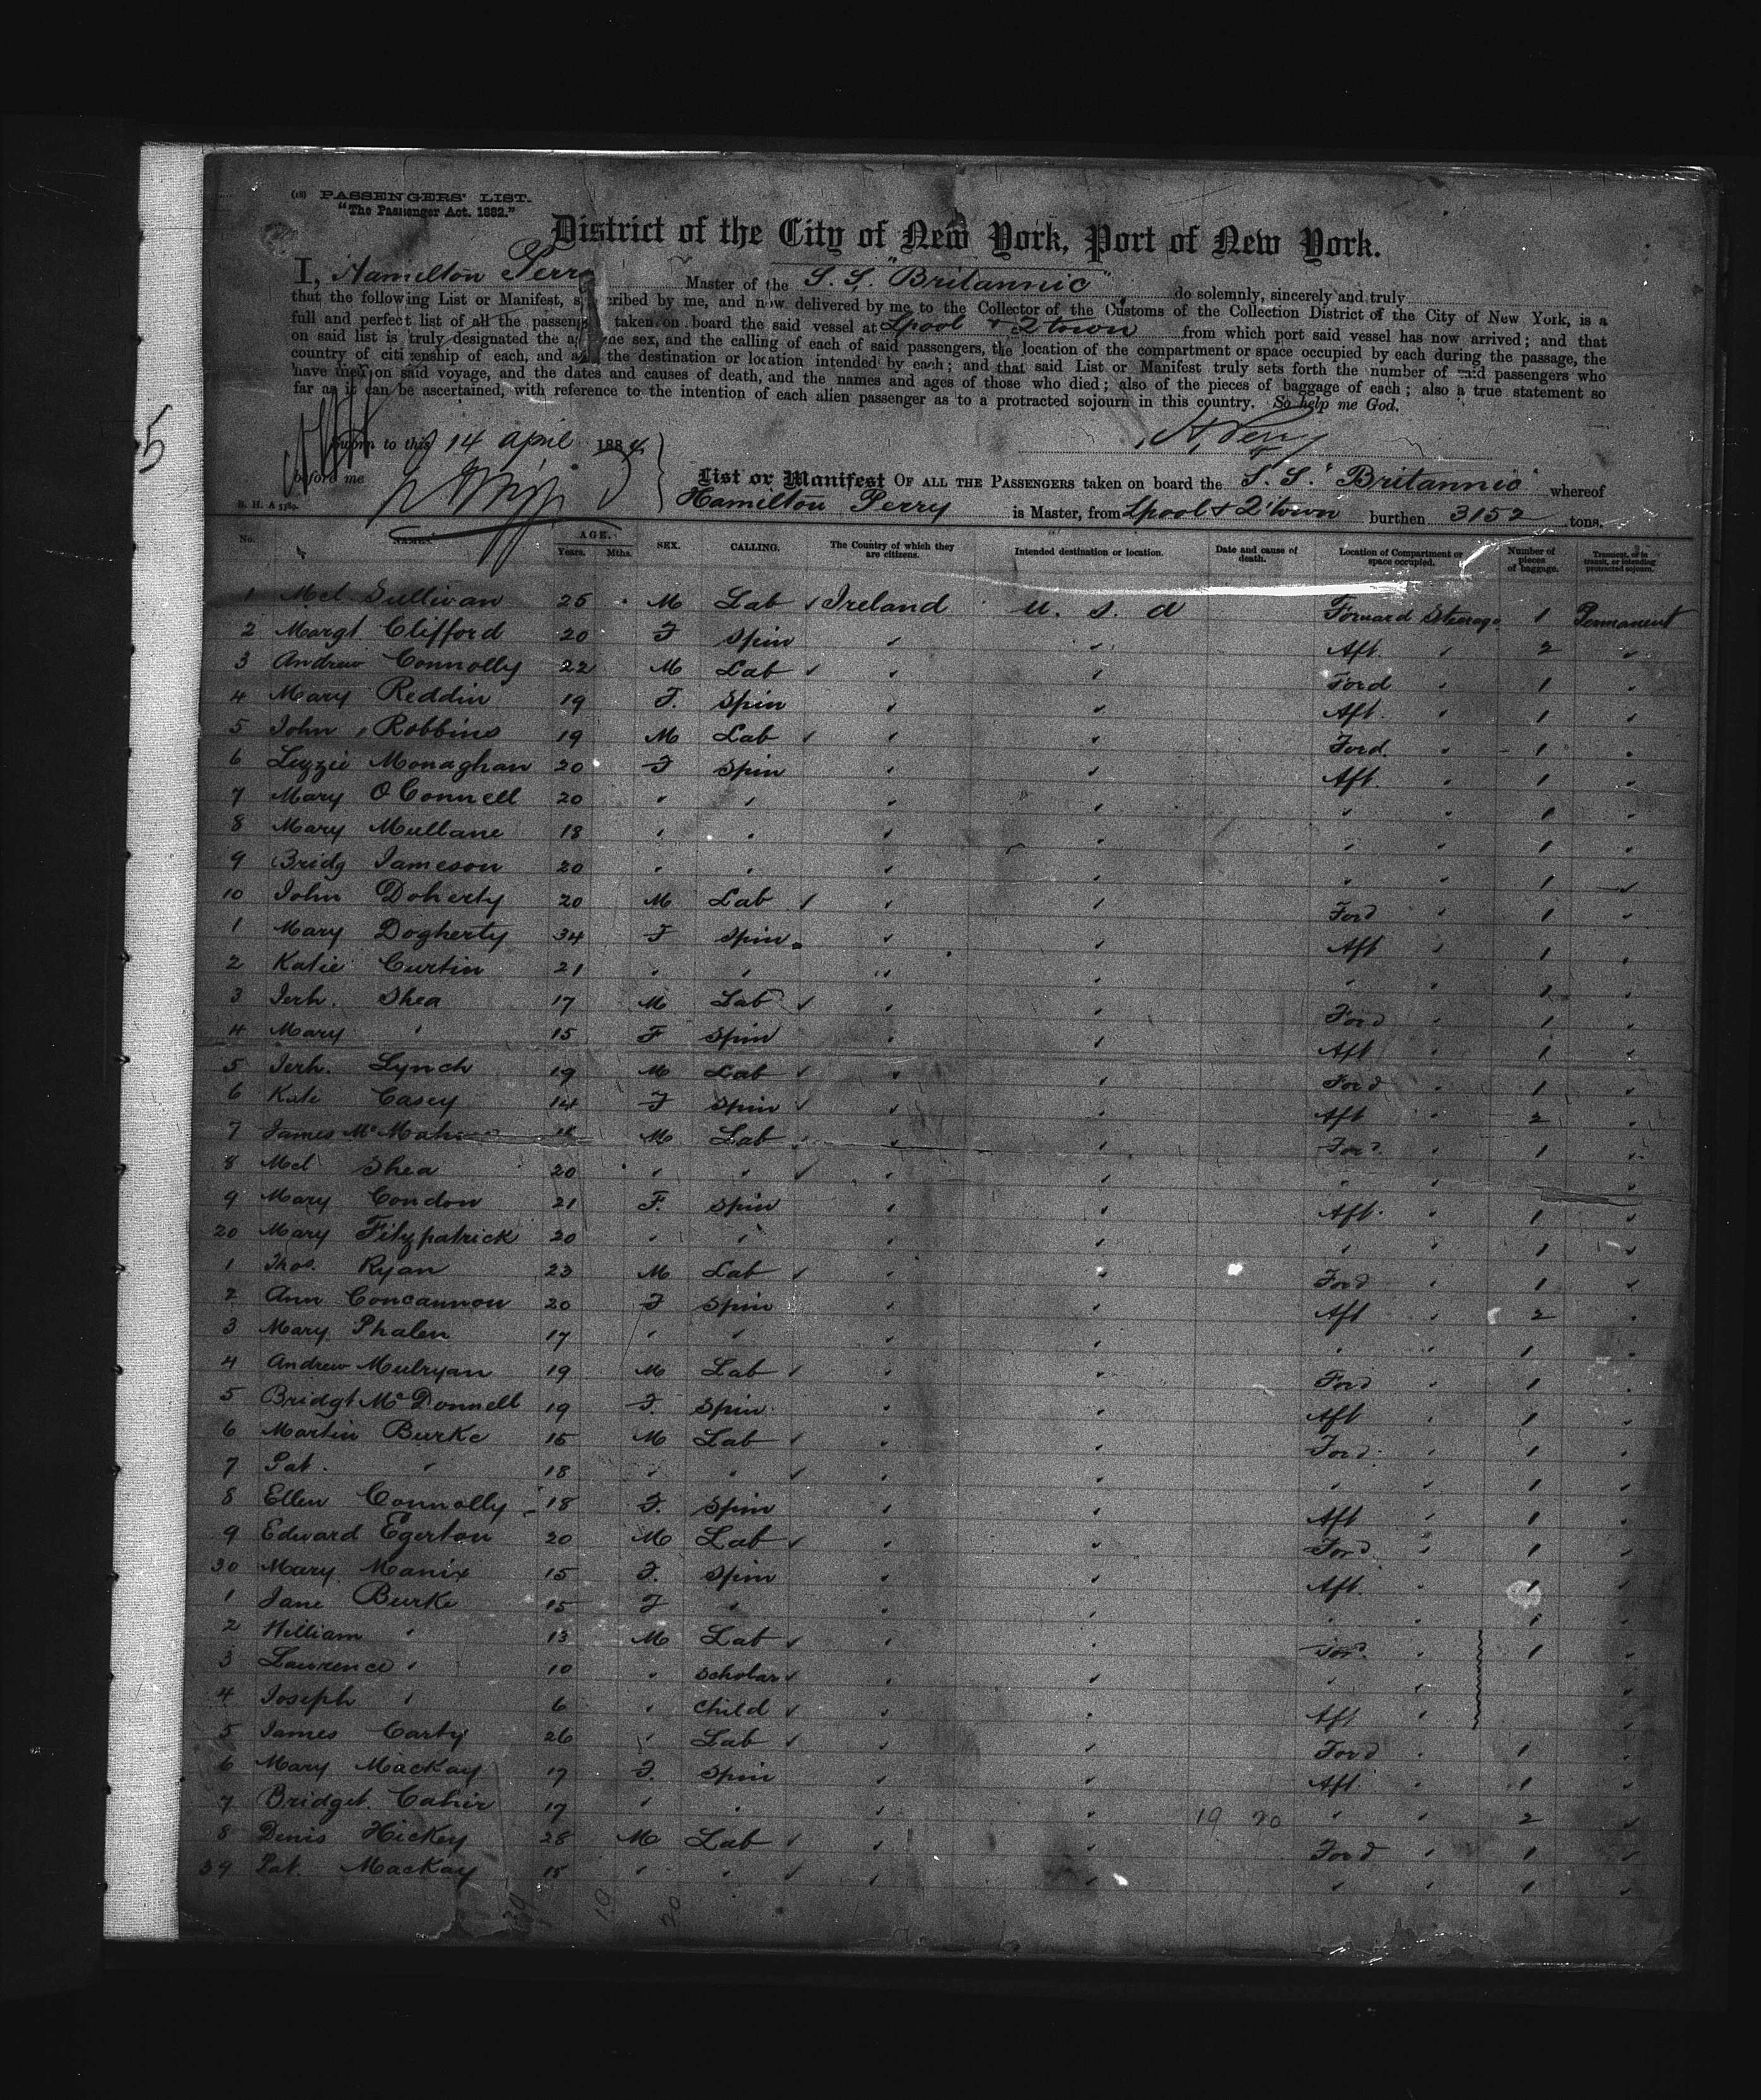 (19) PASSENGERS' LIST.
"The Passenger Act. 1882."
District of the City of New York, Port of New York.
I, Hamilton Perry Master of the S. S. "Britannic" do solemnly, sincerely and truly
that the following List or Manifest, s cribed by me, and now delivered by me to the Collector of the Customs of the Collection District of the City of New York, is a
full and perfect list of all the passeng taken on board the said vessel at Lpool & Q'town from which port said vessel has now arrived; and that
on said list is truly designated the a the sex, and the calling of each of said passengers, the location of the compartment or space occupied by each during the passage, the
country of citizenship of each, and a the destination or location intended by each; and that said List or Manifest truly sets forth the number of said passengers who
have died on said voyage, and the dates and causes of death, and the names and ages of those who died; also of the pieces of baggage of each; also a true statement so
far as it can be ascertained, with reference to the intention of each alien passenger as to a protracted sojourn in this country. So help me God.
Sworn to this 14 April 1884 H. Perry
before me
List or Manifest OF ALL THE PASSENGERS taken on board the S. S. "Britannic" whereof
Hamilton Perry is Master, from Lpool & Q'town burthen 3152 tons.
No. NAMES. AGE. Years. Mths. SEX. CALLING. The Country of which they are citizens. Intended destination or location. Date and cause of death. Location of Compartment or space occupied. Number of pieces of baggage. Transient, or in transit, or intending protracted sojourn.
1 Mcl Sullivan 25 M Lab Ireland U. S. A Forward Steerage 1 Permanent
2 Margt Clifford 20 F Spin " " Aft " 2 "
3 Andrew Connolly 22 M Lab " " Ford " 1 "
4 Mary Reddin 19 F. Spin " " Aft. " 1 "
5 John Robbins 19 M Lab " " Ford " 1 "
6 Lizzie Monaghan 20 F Spin " " Aft. " 1 "
7 Mary O'Connell 20 " " " " " " 1 "
8 Mary Mullane 18 " " " " " " 1 "
9 Bridg Jameson 20 " " " " " " 1 "
10 John Doherty 20 M Lab " " Ford " 1 "
1 Mary Dogherty 34 F Spin " " Aft " 1 "
2 Katie Curtin 21 " " " " " " 1 "
3 Jerh. Shea 17 M Lab " " Ford " 1 "
4 Mary " 15 F Spin " " Aft " 1 "
5 Jerh. Lynch 19 M Lab " " Ford " 1 "
6 Kate Casey 14 F Spin " " Aft " 2 "
7 James McMahon M Lab " " Ford " 1 "
8 Mcl Shea 20 " " " " " " "
9 Mary Condon 21 F. Spin " " Aft. " 1 "
20 Mary Fitzpatrick 20 " " " " " " 1 "
1 Thos. Ryan 23 M Lab " " Ford " 1 "
2 Ann Concannon 20 F Spin " " Aft " 2 "
3 Mary Phalen 17 " " " " " " 1 "
4 Andrew Mulryan 19 M Lab " " Ford " 1 "
5 Bridgt McDonnell 19 F. Spin " " Aft " 1 "
6 Martin Burke 15 M Lab " " Ford " 1 "
7 Pat. " 18 " " " " " " 1 "
8 Ellen Connolly 18 F. Spin " " Aft " 1 "
9 Edward Egerton 20 M Lab " " Ford " 1 "
30 Mary Manix 15 F. Spin " " Aft. " 1 "
1 Jane Burke 15 F " " " " " 1 "
2 William " 13 M Lab " " Ford " 1 "
3 Lawrence " 10 " Scholar " " " " "
4 Joseph " 6 " Child " " Aft " "
5 James Carty 26 " Lab " " Ford " 1 "
6 Mary Mackay 17 F. Spin " " Aft. " 1 "
7 Bridget Cahir 17 " " " " 19 20 " " 2 "
8 Denis Hickey 28 M Lab " " Ford " 1 "
39 Pat. Mackay 15 " " " " " " 1 "
39 19 20